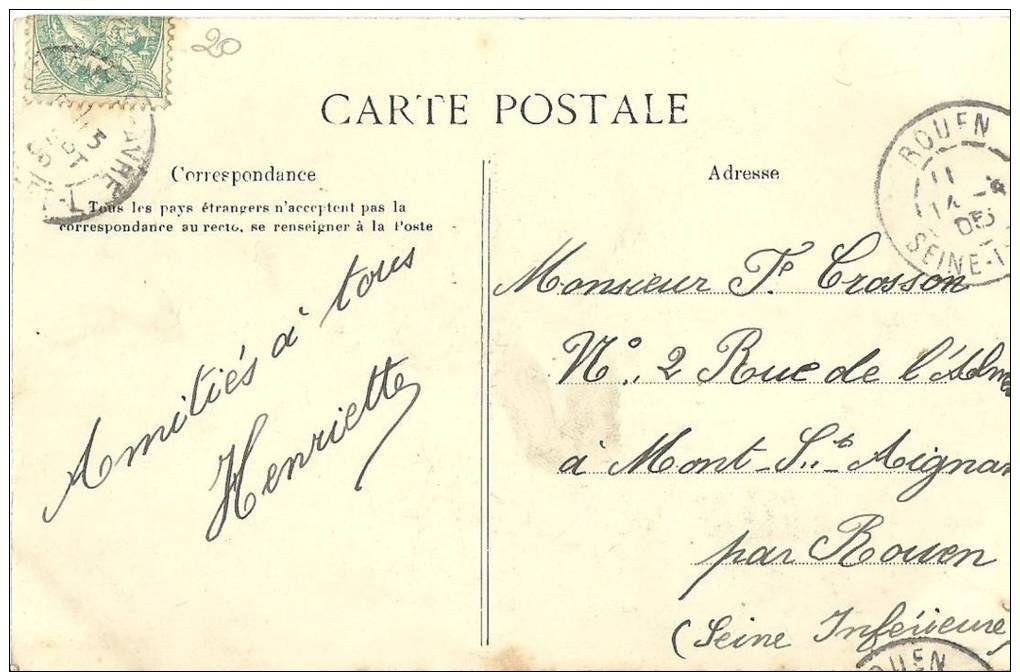 20
CARTE POSTALE
Correspondance
Tous les pays étrangers n'acceptent pas la
correspondance au recto, se renseigner à la Poste
Amitiés à tous
Henriette
Adresse
ROUEN
11
05
SEINE-I
Monsieur F. Crosson
N° 2 Rue de l'
à Mont-St-Aignan
par Rouen
(Seine Inférieure)
OUEN